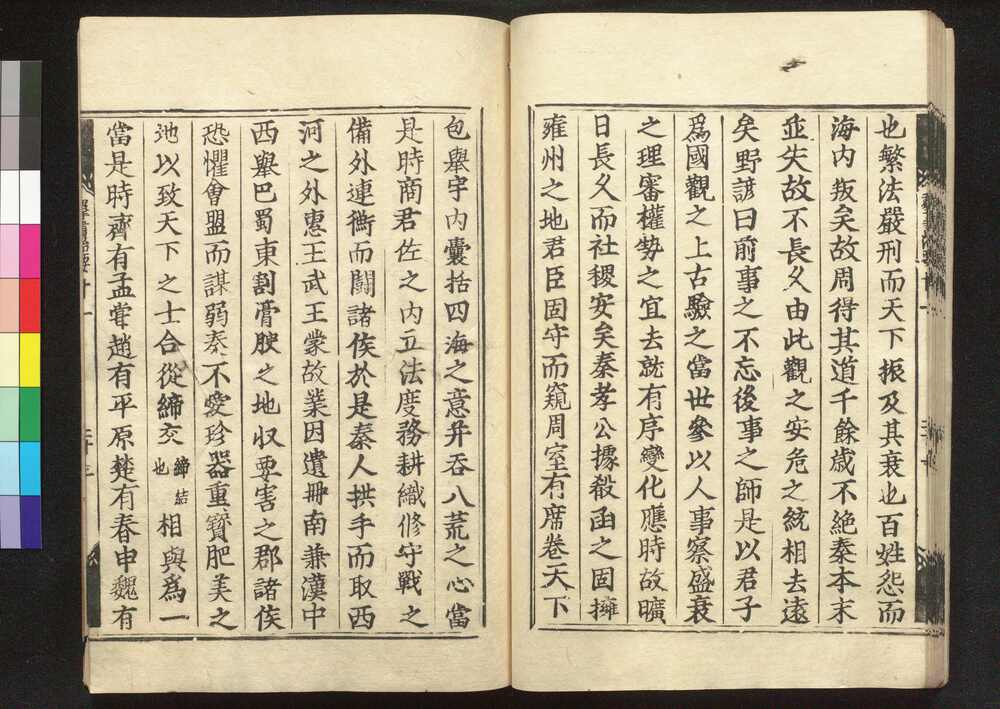 也繁法嚴刑而天下振及其衰也百姓怨而
海内叛矣故周得其道千餘歲不絶秦本末
並失故不長久由此觀之安危之統相去遠
矣野諺曰前事之不忘後事之師是以君子
爲國觀之上古驗之當世參以人事察盛衰
之理審權勢之宜去就有序變化應時故曠
日長久而社稷安矣秦孝公據殺函之固擁
雍州之地君臣固守而窺周室有席卷天下
包舉宇内囊括四海之意并吞八荒之心當
是時商君佐之内立法度務耕織修守戰之
備外連衡而鬪諸侯於是秦人拱手而取西
河之外惠王武王蒙故業因遺冊南兼漢中
西舉巴蜀東割膏腴之地収要害之郡諸侯
恐懼會盟而謀弱秦不愛珍器重寳肥美之
地以致天下之士合從締交締結也相與爲一
當是時齊有孟甞趙有平原楚有春申魏有